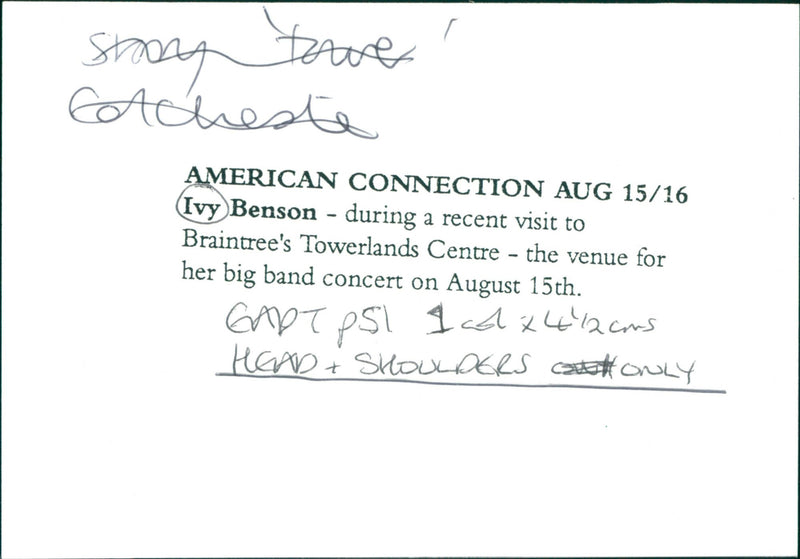 Story 'tower'
Colchester
AMERICAN CONNECTION AUG 15/16
Ivy Benson – during a recent visit to
Braintree's Towerlands Centre – the venue for
her big band concert on August 15th.
p51 1 col x 4 1/2 cms
HEAD + SHOULDERS ONLY